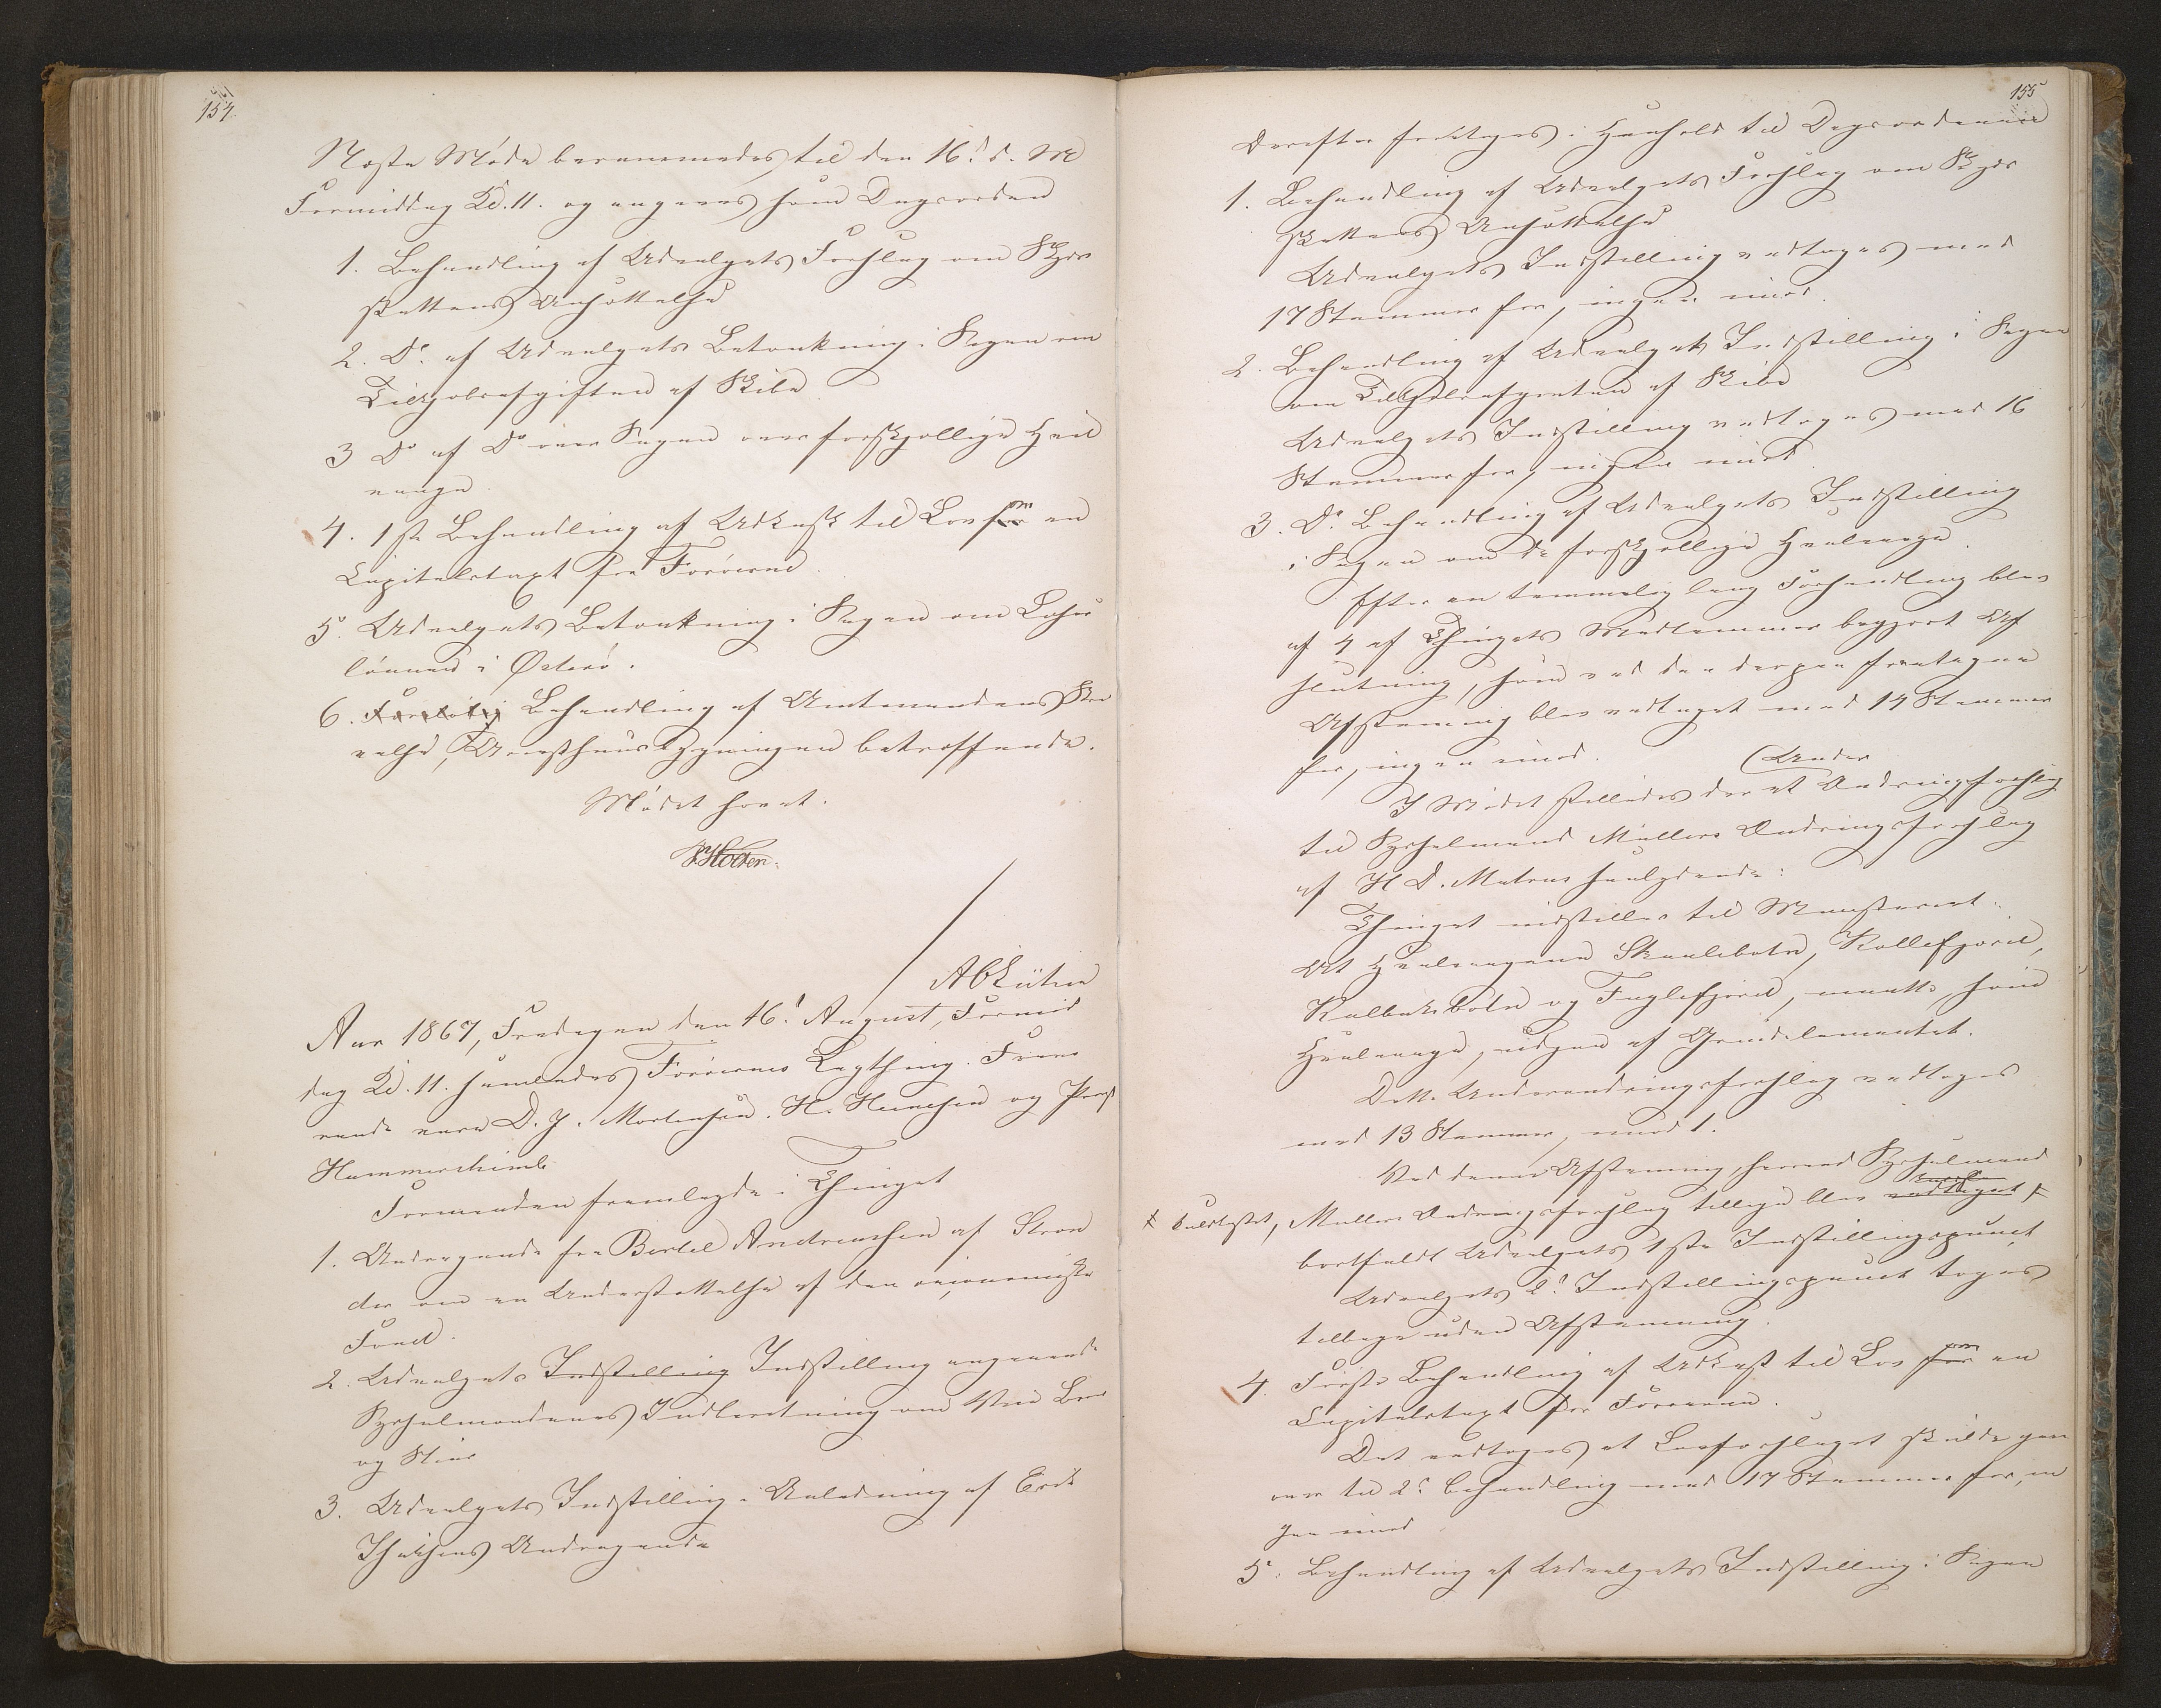 154.
Næste Møde berammedes til den 16d. d. M
Formiddag Kl. 11. og angaves som Dagsorden
1. Behandling af Udvalgets Forslag om Skyds
skattens Ansættelse
2. Do. af Udvalgets Betænkning i Sagen om
Tiisafgiften af Skibe
3 Do af Do over Sagen over forskjellige Hval
vaage
4. 1ste Behandling af Udkast til Lov for om en
Capitalstaxt for Færøerne.
5. Udvalgets Betænkning i Sagen om
lønnen i Østerø.
6. Foreløbig Behandling af Amtmandens Skri
velse, Arresthuusbygningen betræffende.
Mødet hævet.
HCMüller
Aar 1867, Fredagen den 16d August, Formid
dag Kl. 11. samledes Færøernes Lagthing. Fravæ
rende vare D. J. Mortensen. H. Hansen og Provst
Hammershaimb
Formanden fremlagde i Thinget
1. Andragende fra Bertel Andreasen af Strøn
der om en Understøttelse af den
Fond.
2. Udvalgets Indstilling Indstilling angaaende
Sysselmændenes Indberetning om Veie Broer
og Stier
3. Udvalgets Indstilling i Anledning af
Andragende
155
Derefter foretoges i Henhold til Dagsordenen
1. Behandling af Udvalgets Forslag om Skyds
skattens Ansættelse
Udvalgets Indstilling vedtoges med
17 Stemmer for, ingen imod.
2. Behandling af Udvalgets Indstilling i Sagen
om af Skibe
Udvalgets Indstilling vedtoges med 16
Stemmer for, ingen imod.
3. Do. Behandling af Udvalgets Indstilling
i Sagen om de forskjellige Hvalvaage.
Efter en temmelig lang Forhandling blev
af 4 af Thingets Medlemmer begjært Af
slutning, som ved den derpaa foretagne
Afstemning blev vedtaget med 14 Stemmer
for, ingen imod.
(Under
I Mødet stilledes der et Ændringsforslag
til Sysselmand Müllers Ændringsforslag
af H D. Matras saalydende:
Thinget indstiller til Ministeriet:
At Hvalvaagene Skaalebotn, Kollefjord,
Kalbaksbotn og Fuglefjord, maatte som
Hvalvaage, udgaa af Grundelementet.
Dette Underændringsforslag vedtoges
med 13 Stemmer, imod 1.
Ved denne Afstemning, hvorved Sysselmand
Müllers Ændringsforslag tillige blev vedtaget
bortfaldt Udvalgets 1ste Indstillingspunct
Udvalgets 2d Indstillingspunct toges
tilbage uden Afstemning.
4. Første Behandling af Udkast til Lov for om en
Capitalstaxt for Færøerne.
Det vedtoges at Lovforslaget skulde gaae
over til 2d Behandling med 17 Stemmer for, in
gen imod
5. Behandling af Udvalgets Indstilling i Sagen